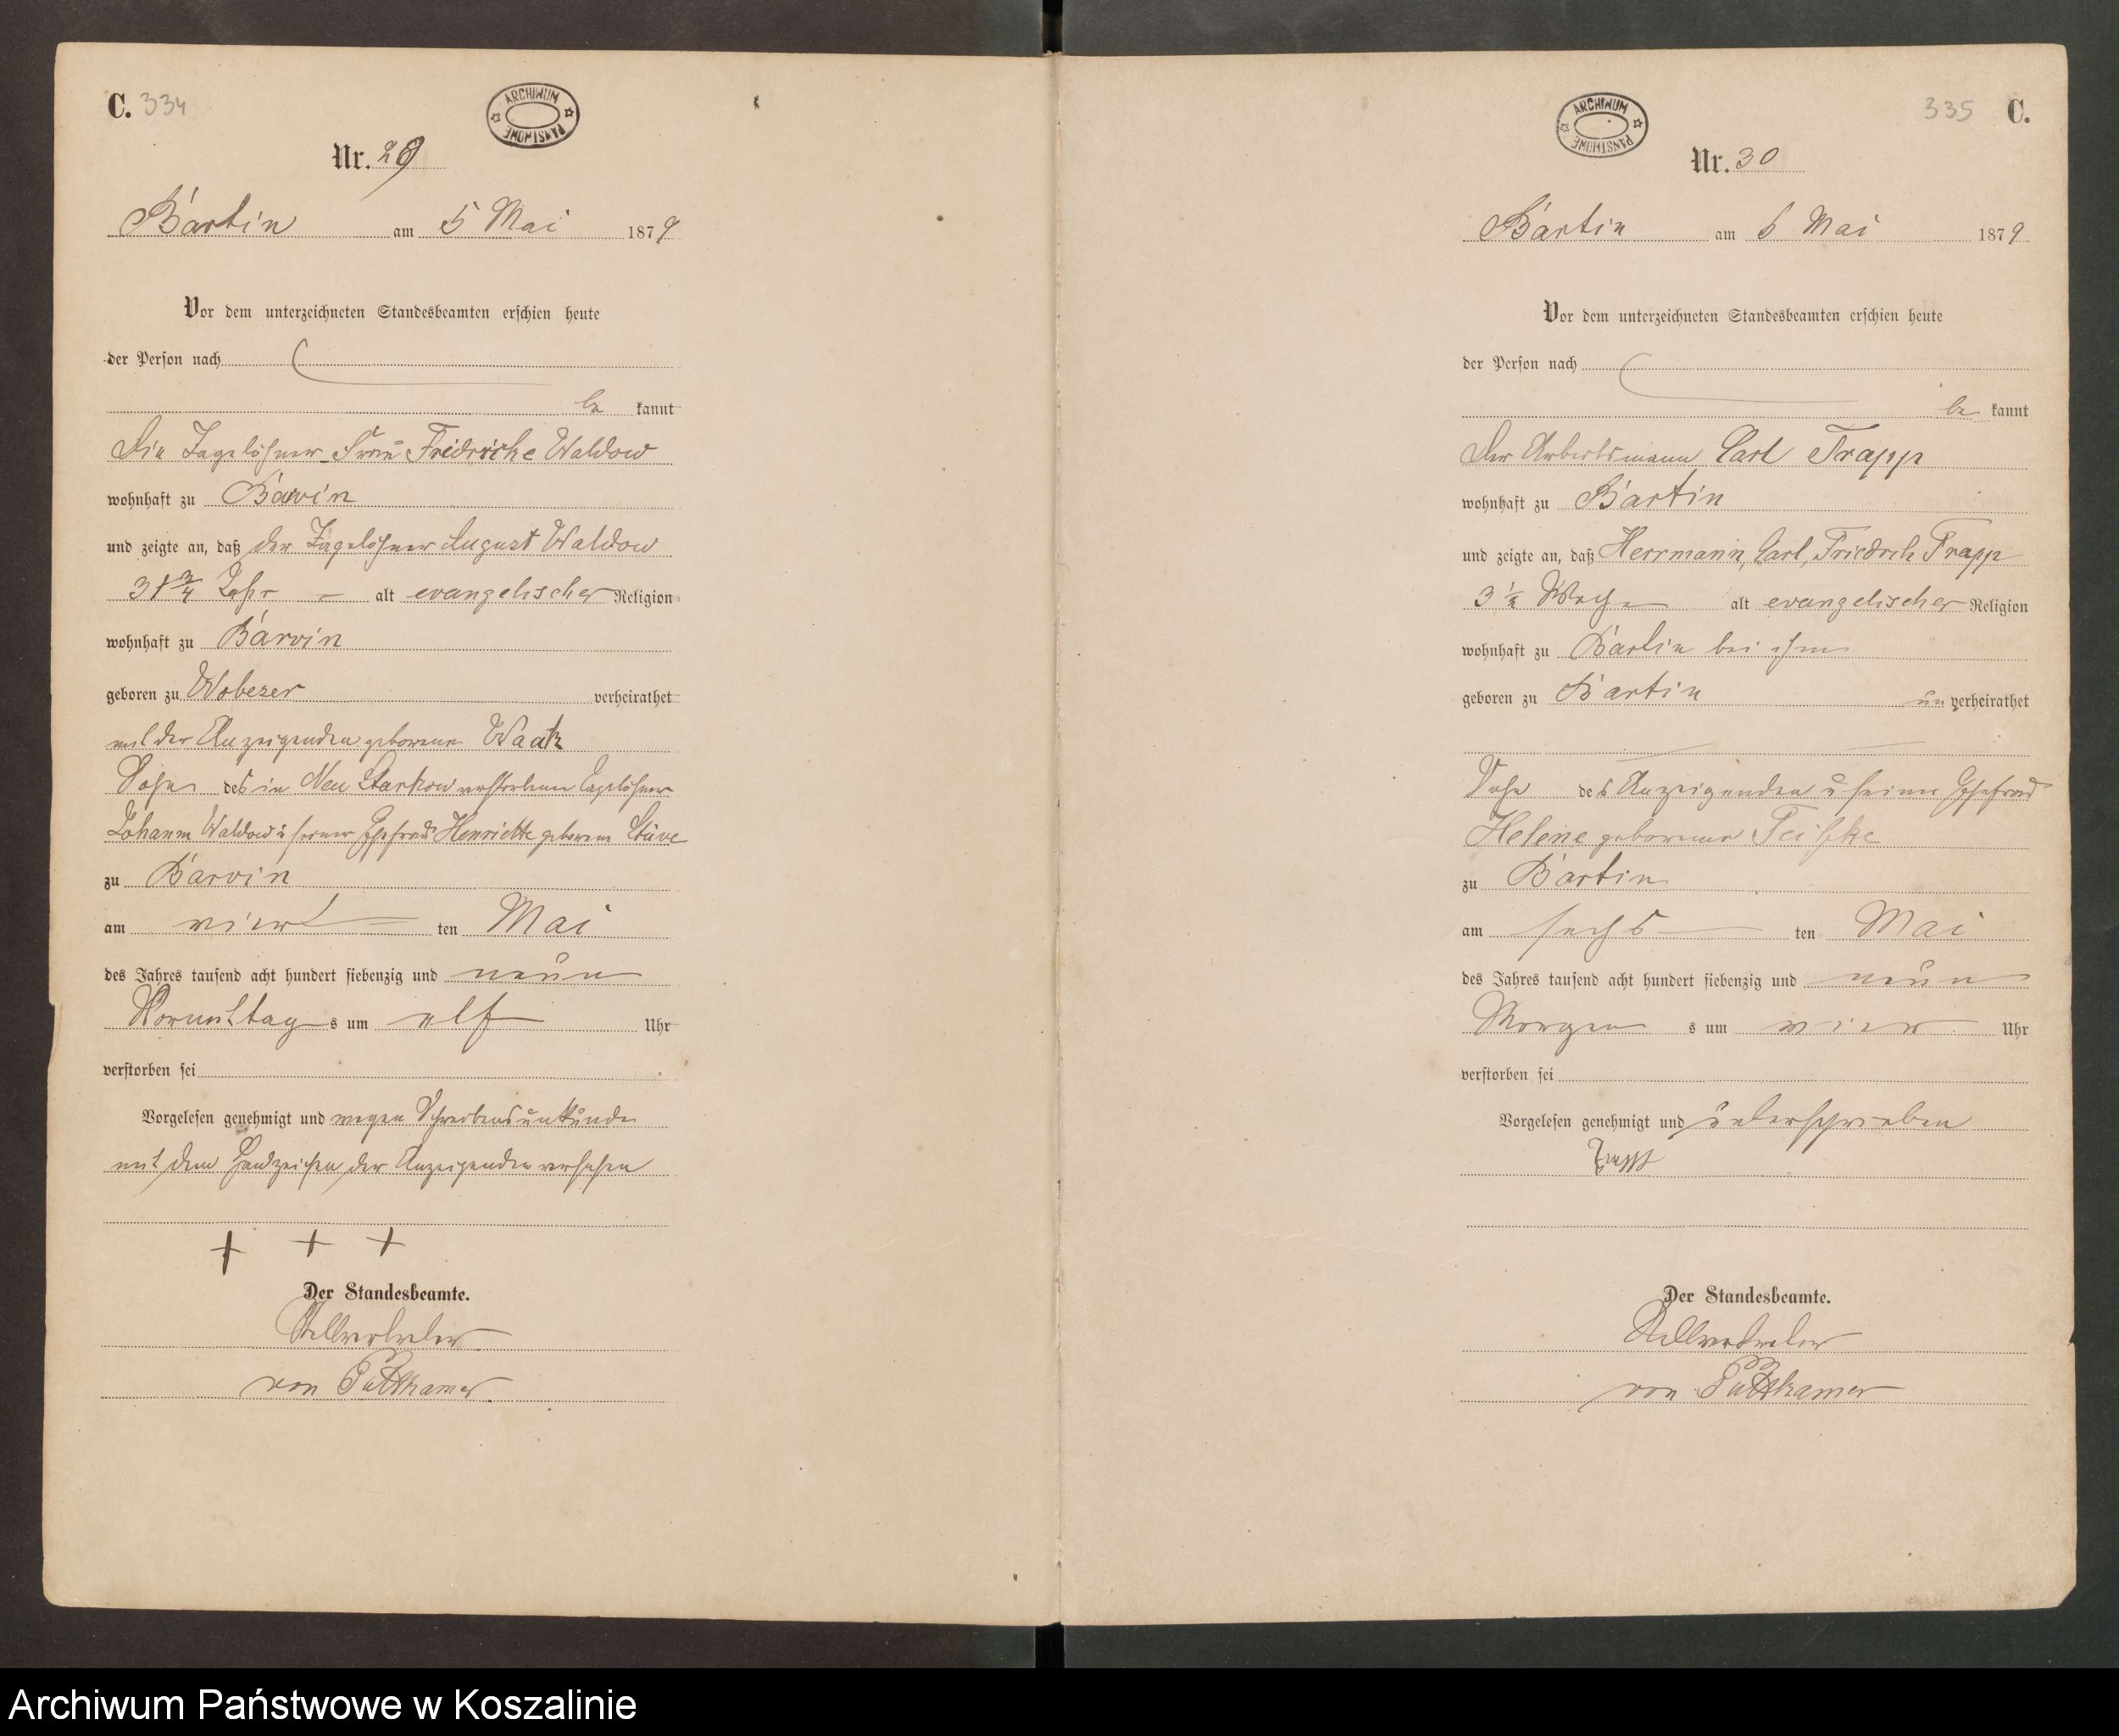 C. 334
ARCHIWUM PAŃSTWOWE
Nr. 29
Bartin am 5 Mai 1879
Vor dem unterzeichneten Standesbeamten erschien heute
der Person nach
be kannt
Die Tagelöhner-Frau Fridricke Waldow
wohnhaft zu Barvin
und zeigte an, daß der Tagelöhner August Waldow
31 3/4 Jahr alt evangelischer Religion
wohnhaft zu Barvin
geboren zu Wobeser verheirathet
mit der Anzeigenden geborene Waak
Sohn des in Neu Starkow verstorbenen Tagelöhner
Johann Waldow u seiner Ehefrau Henriette geborene Stüve
zu Barvin
am viert ten Mai
des Jahres tausend acht hundert siebenzig und neun
Vormittag s um elf Uhr
verstorben sei
Vorgelesen genehmigt und wegen Schreibensunkunde
mit dem Handzeichen der Anzeigenden versehen
+ + +
Der Standesbeamte.
Stellvertreter
von Puttkamer
335 C.
ARCHIWUM PAŃSTWOWE
Nr. 30
Bartin am 6 Mai 1879
Vor dem unterzeichneten Standesbeamten erschien heute
der Person nach
be kannt
Der Arbeitsmann Carl Trapp
wohnhaft zu Bartin
und zeigte an, daß Herrmann, Carl, Friedrich Trapp
3 1/2 Woche alt evangelischer Religion
wohnhaft zu Bartin bei ihm
geboren zu Bartin un verheirathet
Sohn des Anzeigenden u seiner Ehefrau
Helene geborene
zu Bartin
am sechs ten Mai
des Jahres tausend acht hundert siebenzig und neun
Morgen s um vier Uhr
verstorben sei
Vorgelesen genehmigt und unterschrieben
Trapp
Der Standesbeamte.
Stellvertreter
von Puttkamer
Archiwum Państwowe w Koszalinie